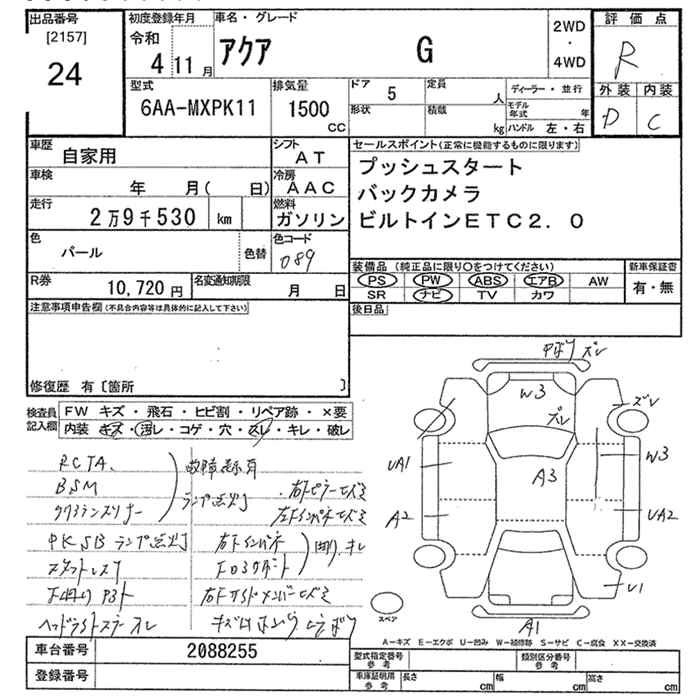 出品番号
[2157]
24
初度登録年月
令和
4 11 月
車名・グレード
アクア G
2WD
・
4WD
評価点
R
外装 内装
D C
型式
6AA-MXPK11
排気量
1500
CC
ドア 5
形状
定員
人
積載
kg
ディーラー・並行
モデル
年式 年
ハンドル 左・右
車歴
自家用
シフト
AT
車検
年 月( 日)
冷房
AAC
走行
2万9千530 km
燃料
ガソリン
色
パール
色替
色コード
089
R券
10,720 円
名変通知期限
月 日
セールスポイント(正常に機能するものに限ります)
プッシュスタート
バックカメラ
ビルトインETC2.0
装備品 (純正品に限り○をつけてください)
PS PW ABS エアB AW
SR ナビ TV カワ
新車保証書
有・無
後日品
注意事項申告欄(不具合内容等は具体的に記入して下さい)
修復歴 有〔箇所 〕
検査員
記入欄
FW キズ・飛石・ヒビ割・リペア跡・×要
内装 キズ・汚レ・コゲ・穴・スレ・キレ・破レ
RCTA、
BSM
クリアランスソナー
故障表示有
ランプ点灯
右トピラーキズ
左下インパネキズ
PKSB ランプ点灯
右下インパネ
ヘッドライトステー オレ
中ずり ズレ
W3
ズレ
ズレ
UA1
A3
W3
A2
UA2
U1
A1
スペア
A-キズ E-エクボ U-凹み W-補修跡 S-サビ C-腐食 XX-交換済
車台番号
2088255
登録番号
型式指定番号
参考
類別区分番号
参考
車庫証明用
参考
長さ cm
幅 cm
高さ cm